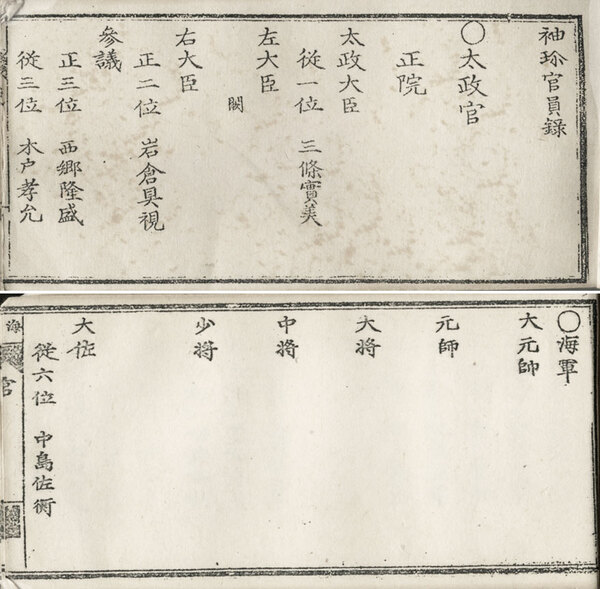 袖珍官員録
○太政官
正院
太政大臣
從一位 三條實美
左大臣
闕
右大臣
正二位 岩倉具視
參議
正三位 西郷隆盛
從三位 木戸孝允
○海軍
大元帥
元帥
大将
中将
少将
大佐
從六位 中島佐衡
海
官